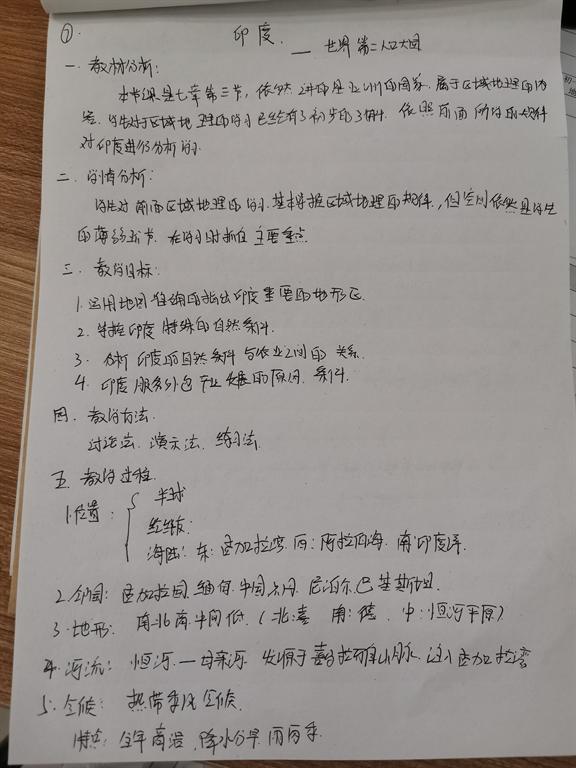 ①.
印度. — 世界第二人口大国
一. 教材分析:
本节课是七年第三节, 依然讲的是亚洲的国家. 属于区域地理的内
容. 学生对于区域地理的学习已经有了初步的了解. 依照前面所学的规律
对印度进行分析学习.
二. 学情分析:
学生对前面区域地理的学习. 基本掌握区域地理的规律, 但空间依然是学生
的薄弱环节. 在学习时抓住主要重点.
三. 教学目标:
1. 运用地图准确的指出印度重要的地形区.
2. 掌握印度特殊的自然条件.
3. 分析印度的自然条件与农业之间的关系.
4. 印度服务外包产业发展的原因、条件.
四. 教学方法:
讨论法. 演示法. 练习法.
五. 教学过程.
1. 位置:
半球
经纬度:
海陆: 东: 孟加拉湾. 西: 阿拉伯海. 南: 印度洋.
2. 邻国: 孟加拉国. 缅甸. 中国. 不丹. 尼泊尔. 巴基斯坦.
3. 地形: 南北高中间低. (北: 喜 南: 德. 中: 恒河平原)
4. 河流: 恒河. — 母亲河. 发源于喜马拉雅山脉. 注入孟加拉湾
5. 气候: 热带季风气候.
特点: 全年高温, 降水分旱雨两季.